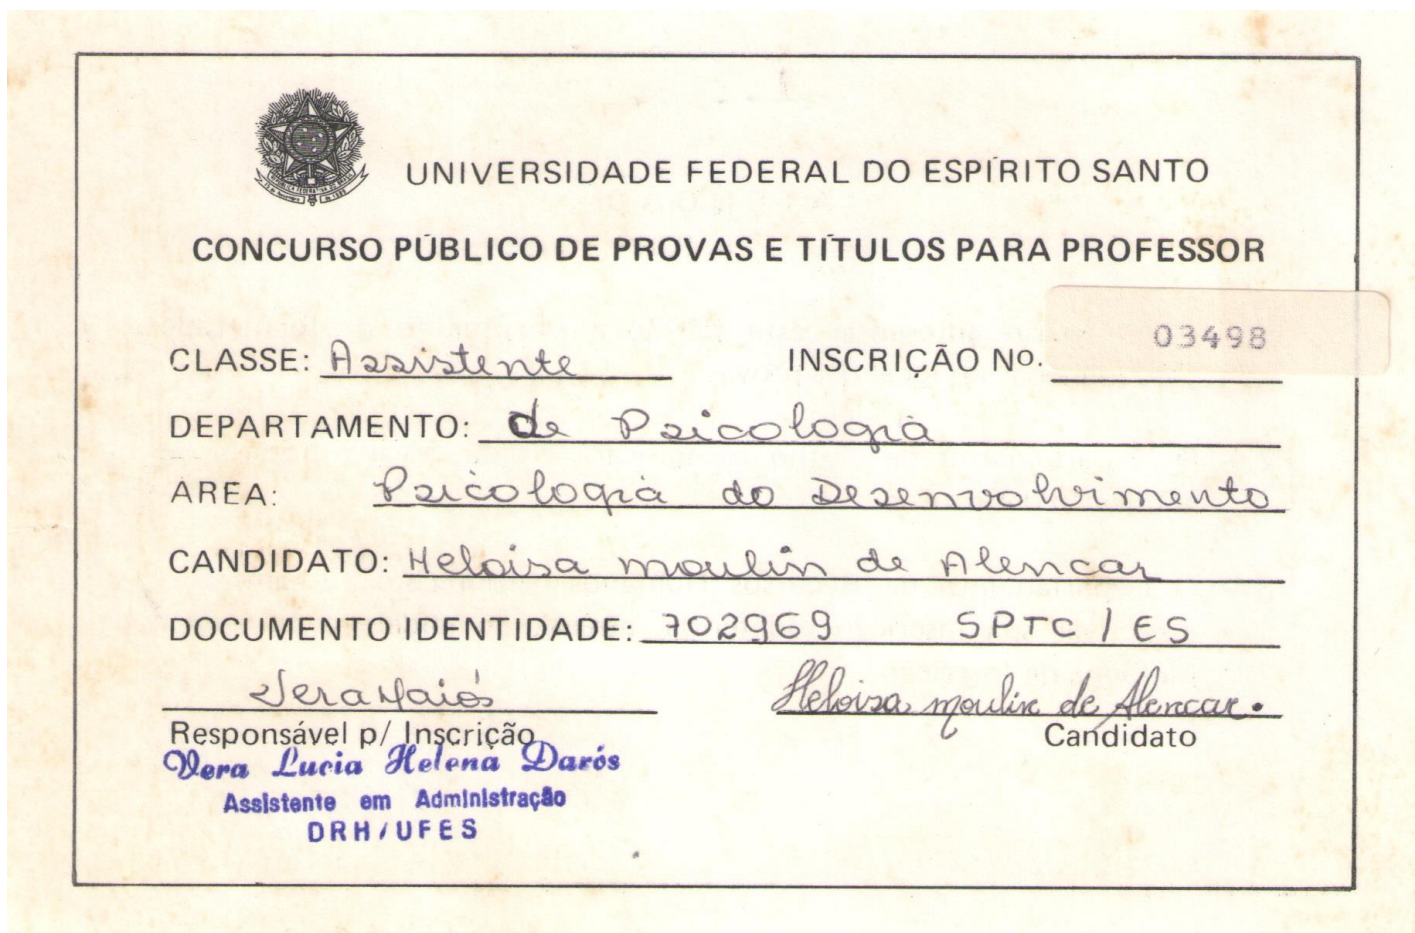 UNIVERSIDADE FEDERAL DO ESPÍRITO SANTO
CONCURSO PÚBLICO DE PROVAS E TÍTULOS PARA PROFESSOR
03498
CLASSE: Assistente INSCRIÇÃO Nº.
DEPARTAMENTO: de Psicologia
AREA: Psicologia do Desenvolvimento
CANDIDATO: Heloisa moulin de Alencar
DOCUMENTO IDENTIDADE: 702969 SPTC/ES
Heloisa moulin de Alencar.
Responsável p/ Inscrição Candidato
Vera Lucia Helena Darós
Assistente em Administração
DRH/UFES